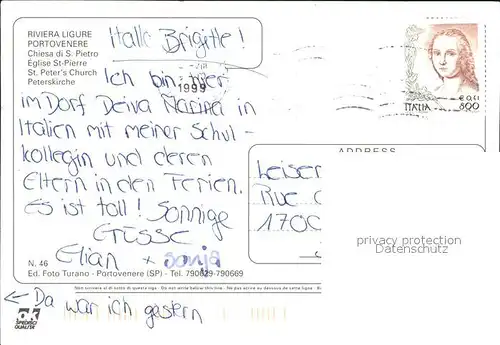 RIVIERA LIGURE
PORTOVENERE
Chiesa di S. Pietro
Église St-Pierre
St. Peter's Church
Peterskirche
Hallo Brigitte!
Ich bin hier
im Dorf Deiva Marina in
Italien mit meiner Schul-
kollegin und deren
Eltern in den Ferien.
Es ist toll! Sonnige
GRÜSSE
Elian + Sonja
1999
ITALIA 800
ADDRESS
Leiser
Rue
1700
privacy protection
Datenschutz
N. 46
Ed. Foto Turano - Portovenere (SP) - Tel. 790629-790669
Non scrivere al di sotto di questa riga - Do not write below this line - Ne pas écrire au dessous de cette ligne
← Da war ich gestern
SPEDISCI
QUALITÀ